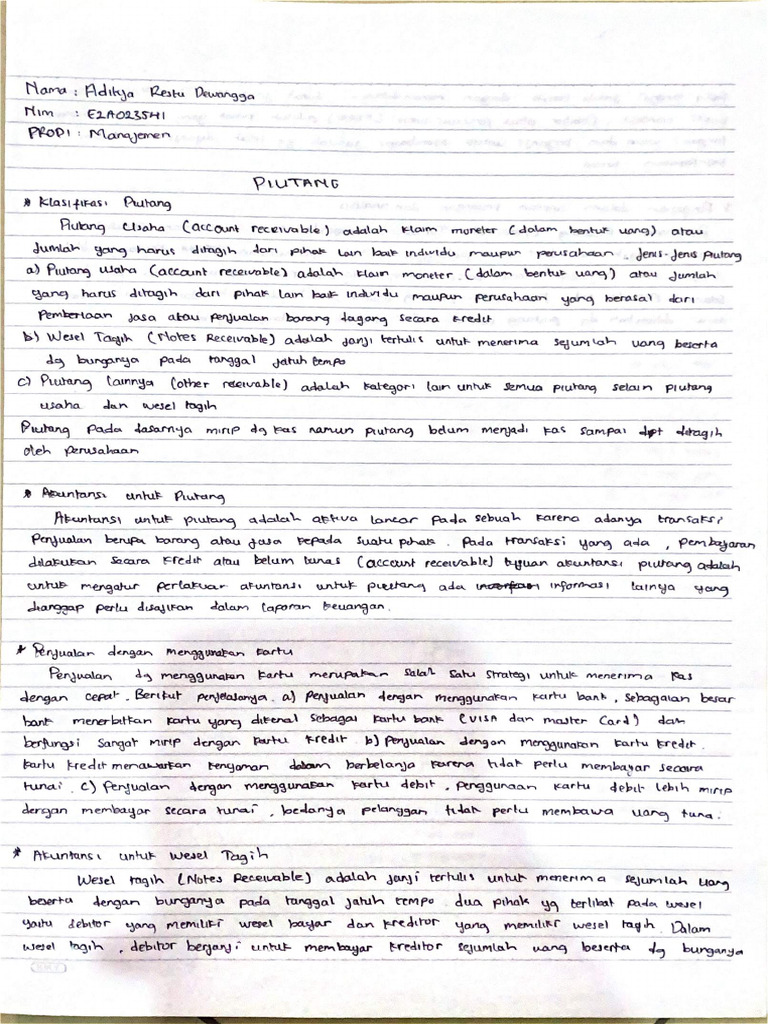 Nama : Aditya Restu Dewangga
Nim : E2A023541
PRODI : Manajemen
PIUTANG
* Klasifikasi Piutang
Piutang Usaha (account receivable) adalah klaim moneter (dalam bentuk uang) atau
Jumlah yang harus ditagih dari pihak lain baik individu maupun perusahaan. Jenis-Jenis piutang
a) Piutang usaha (account receivable) adalah klaim moneter (dalam bentuk uang) atau jumlah
yang harus ditagih dari pihak lain baik individu maupun perusahaan yang berasal dari
Pemberian jasa atau penjualan barang dagang secara kredit.
b) Wesel Tagih (Notes Receivable) adalah janji tertulis untuk menerima sejumlah uang beserta
dg bunganya pada tanggal jatuh tempo
c) Piutang lainnya (other receivable) adalah kategori lain untuk semua piutang selain piutang
usaha dan wesel tagih
Piutang pada dasarnya mirip dg kas namun piutang belum menjadi kas sampai dpt ditagih
oleh perusahaan
* Akuntansi untuk Piutang
Akuntansi untuk piutang adalah aktiva lancar pada sebuah karena adanya transaksi
penjualan berupa barang atau jasa kepada suatu pihak. Pada transaksi yang ada, pembayaran
dilakukan secara kredit atau belum lunas (account receivable) tujuan akuntansi piutang adalah
untuk mengatur perlakuar akuntansi untuk piutang ada informasi lainya yang
dianggap perlu disajikan dalam laporan keuangan.
* Penjualan dengan menggunakan kartu
Penjualan dg menggunakan kartu merupakan salah satu strategi untuk menerima kas
dengan cepat. Berikut penjelasanya. a) penjualan dengan menggunakan kartu bank, sebagaian besar
bank menerbitkan kartu yang dikenal sebagai kartu bank (VISA dan master Card) dan
berfungsi sangat mirip dengan kartu kredit. b) penjualan dengan menggunakan kartu kredit.
kartu kredit menawarkan kenyaman dalam berbelanja karena tidak perlu membayar secara
tunai. c) Penjualan dengan menggunakan kartu debit, penggunaan kartu debit lebih mirip
dengan membayar secara tunai, bedanya pelanggan tidak perlu membawa uang tunai.
* Akuntansi untuk wesel Tagih
Wesel tagih (Notes Receivable) adalah janji tertulis untuk menerima sejumlah uang
beserta dengan bunganya pada tanggal jatuh tempo. dua pihak yg terlibat pada wesel
yaitu debitor yang memiliki wesel bayar dan kreditor yang memiliki wesel tagih. Dalam
wesel tagih, debitor berjanji untuk membayar kreditor sejumlah uang beserta dg bunganya